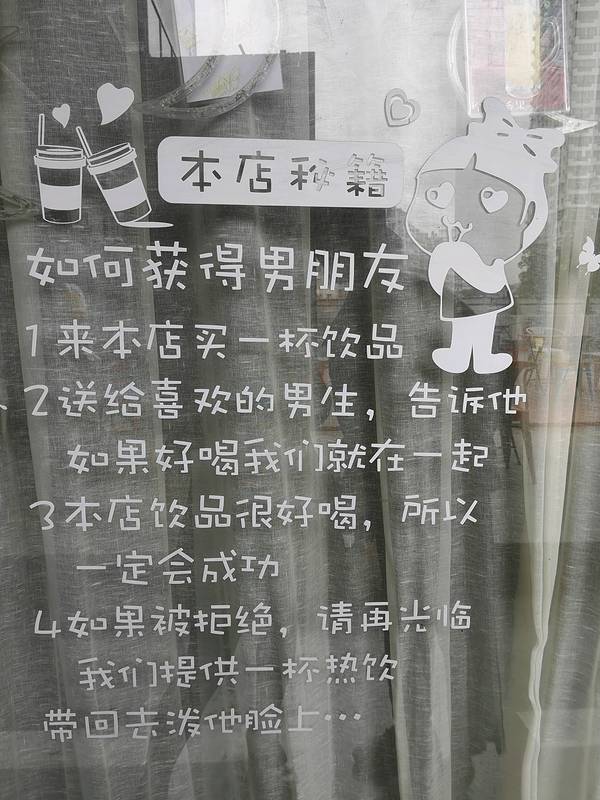 本店秘籍
如何获得男朋友
1来本店买一杯饮品
2送给喜欢的男生，告诉他
如果好喝我们就在一起
3本店饮品很好喝，所以
一定会成功
4如果被拒绝，请再光临
我们提供一杯热饮
带回去泼他脸上…